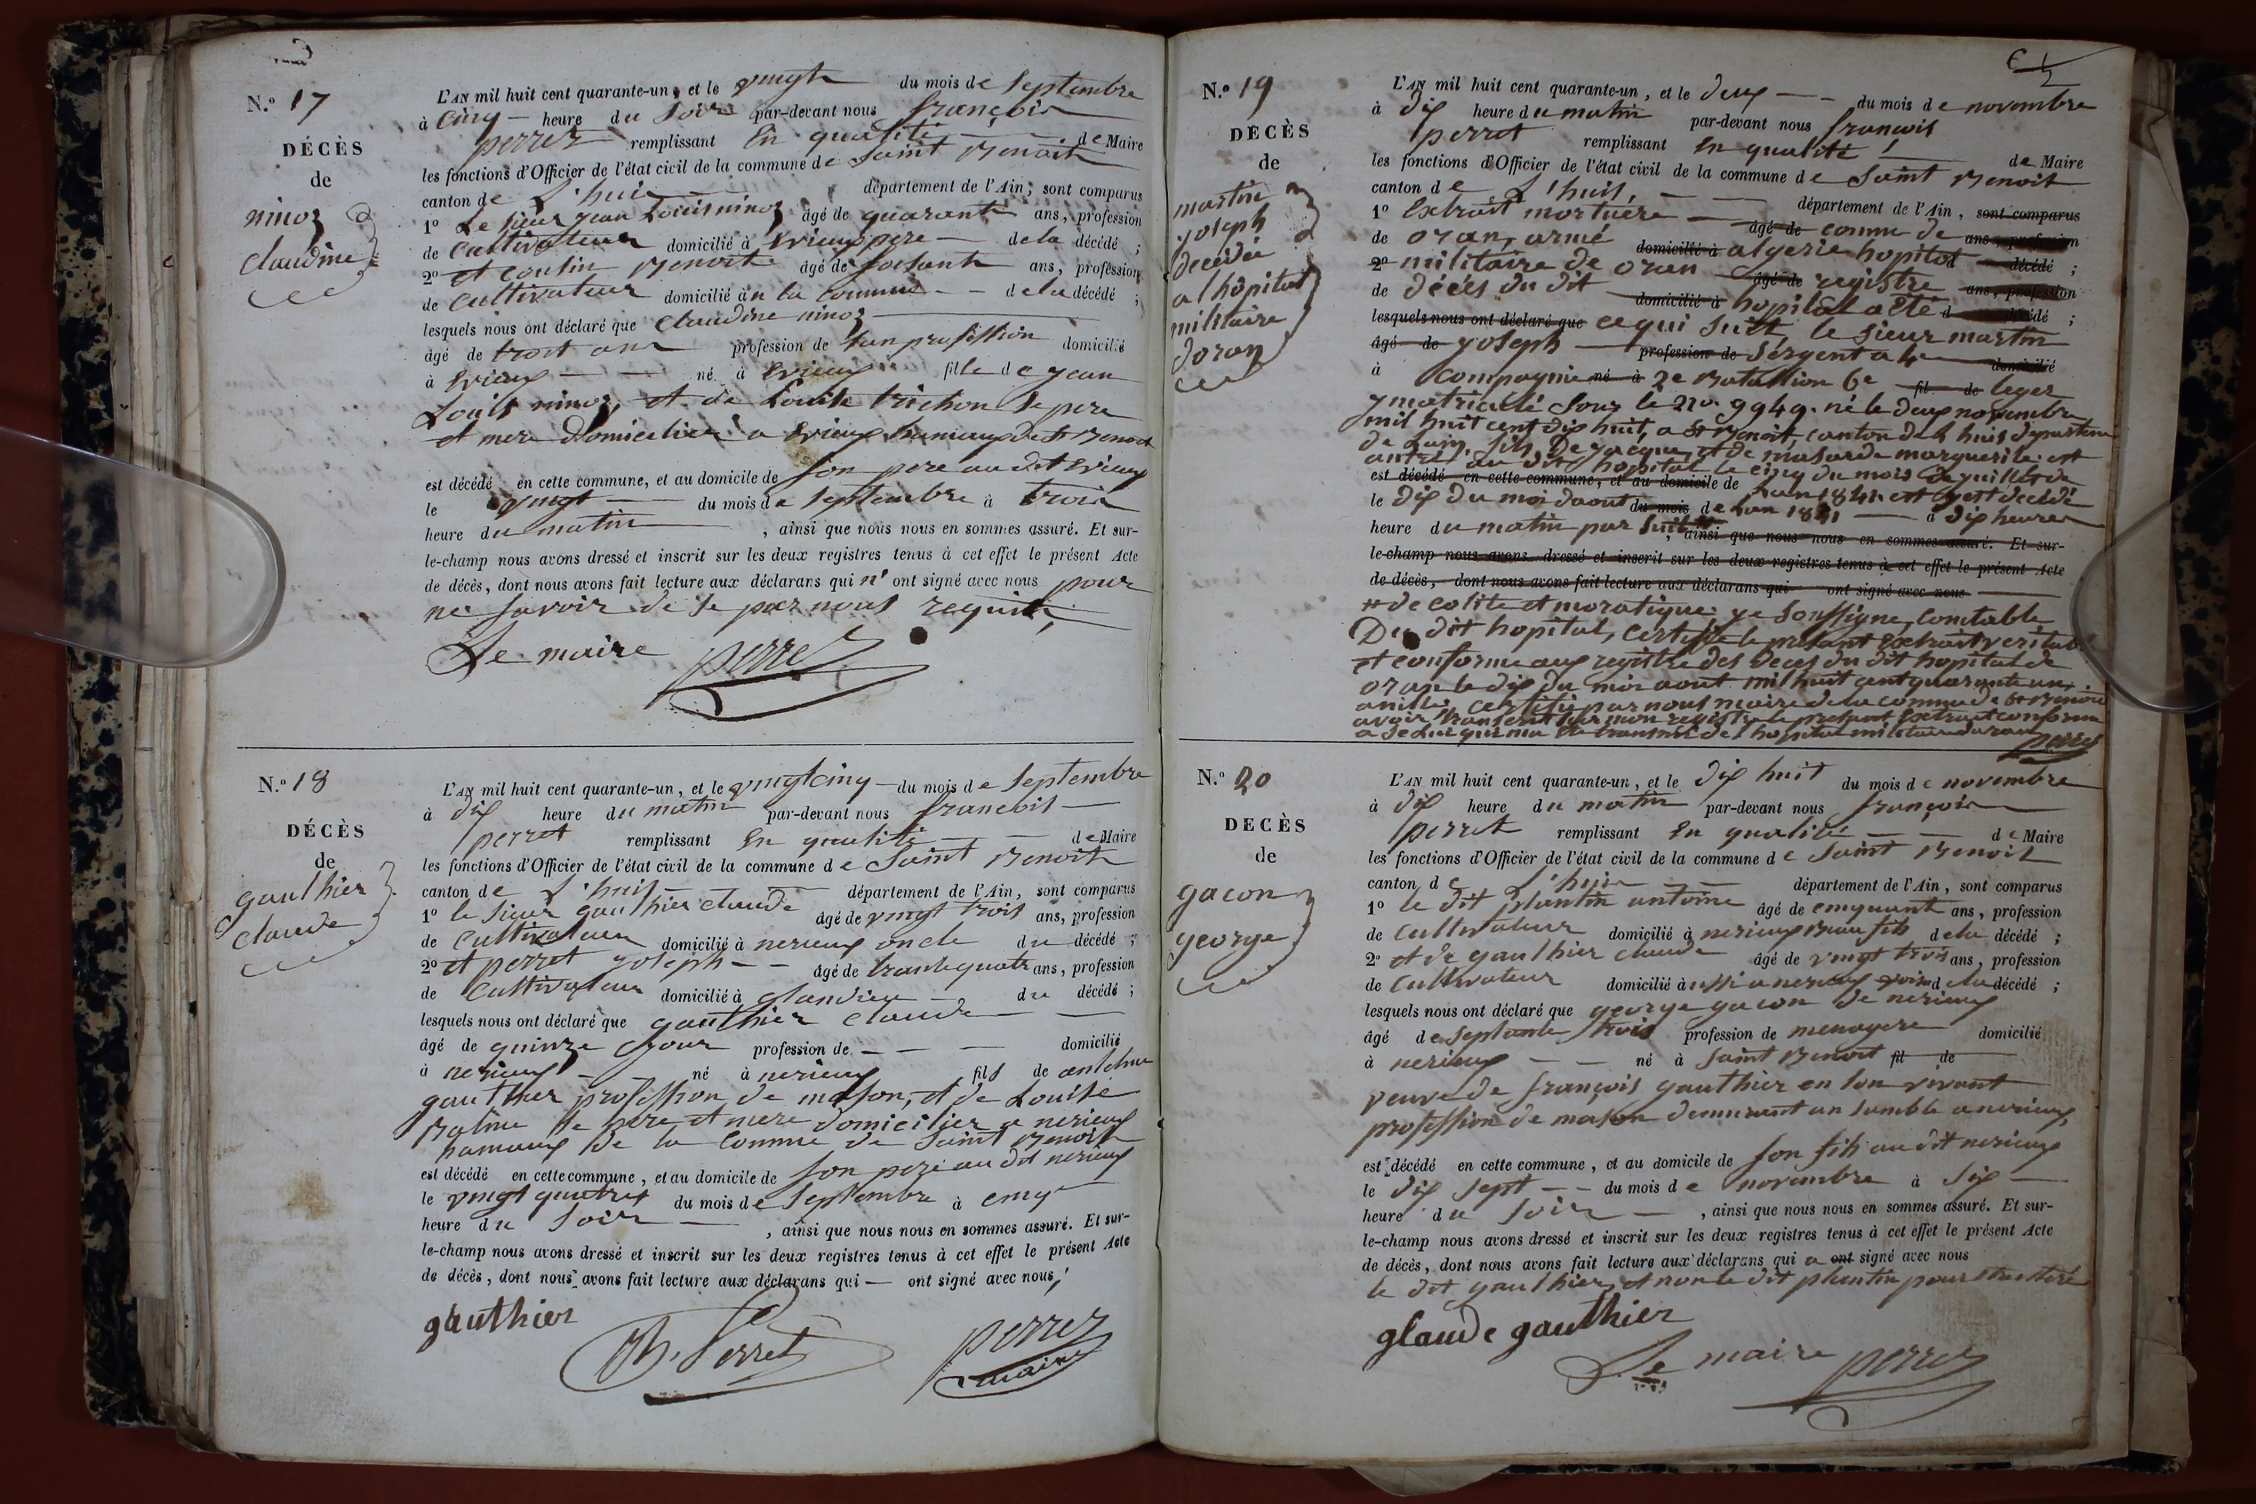 N.º 17
DÉCÈS
de
ninoz
claudine
L'AN mil huit cent quarante-un, et le vingt du mois de septembre
à cinq heure du soir par-devant nous françois
perret remplissant en qualité de Maire
les fonctions d'Officier de l'état civil de la commune de saint Benoit
canton de L'huis département de l'Ain, sont comparus
1º Le sieur jean Louis ninoz âgé de quarante ans, profession
de cultivateur domicilié à evieux pere de la décédé ;
2º et cousin Benoit âgé de soisante ans, profession
de cultivateur domicilié à en la commune de la décédé ;
lesquels nous ont déclaré que claudine ninoz
âgé de troit ans profession de san profission domicilié
à evieux né à evieux fille de jean
Louis ninoz, et de Louise trichon le pere
et mere domicelier a evieux hameaux de st Benoit
est décédé en cette commune, et au domicile de son pere au dit evieux
le vingt du mois de septembre à trois
heure du matin, ainsi que nous nous en sommes assuré. Et sur-
le-champ nous avons dressé et inscrit sur les deux registres tenus à cet effet le présent Acte
de décès, dont nous avons fait lecture aux déclarans qui n'ont signé avec nous pour
ne savoir de se par nous requis,
Le maire perret
N.º 18
DÉCÈS
de
gauthier
claude
L'AN mil huit cent quarante-un, et le vingt cinq du mois de septembre
à dix heure du matin par-devant nous francois
perret remplissant en qualité de Maire
les fonctions d'Officier de l'état civil de la commune de saint Benoit
canton de L'huis département de l'Ain, sont comparus
1º le sieur gauthier claude âgé de vingt trois ans, profession
de cultivateur domicilié à nerieux oncle du décédé ;
2º et perret joseph âgé de trante quatr ans, profession
de cultivateur domicilié à glandieu du décédé ;
lesquels nous ont déclaré que gauthier claude
âgé de quinze jour profession de domicilié
à nerieux né à nerieux fils de antelme
gauthier profession de mason, et de Louise
Balme le pere et mere domicilier a nerieux
hamaux de la commune de saint Benoit
est décédé en cette commune, et au domicile de son pere au dit nerieux
le vingt quatre du mois de septembre à cinq
heure du soir, ainsi que nous nous en sommes assuré. Et sur-
le-champ nous avons dressé et inscrit sur les deux registres tenus à cet effet le présent Acte
de décès, dont nous avons fait lecture aux déclarans qui ont signé avec nous,
gauthier
Perret
perret
maire
N.º 19
DÉCÈS
de
martin
joseph
decédé
a l'hôpital
militaire
doran
L'AN mil huit cent quarante-un, et le deux du mois de novembre
à dix heure du matin par-devant nous francois
perret remplissant en qualité de Maire
les fonctions d'Officier de l'état civil de la commune de saint Benoit
canton de L'huis, département de l'Ain, sont comparus
1º extrait mortuére âgé de comune de ans, profession
de oran, armé domicilié à algerie hopital décédé ;
2º militaire de oran âgé de registre ans, profession
de deces du dit domicilié à hopital a été d décédé ;
lesquels nous ont déclaré que ce qui suit, le sieur martin
âgé de joseph profession de sergent a 4e domicilié
à compagnie né à 2e Batallion 6e fil de leger
ymatriculé sous le no. 9949. né le deux novembre
mil huit cent dix huit, a st Benoit, canton de L'huis departemen
de Lain. fils de jacque, et de masarde marguerite. est
antré au dit hopital le cinq du mois de juillet de
est décédé en cette commune, et au domicile de l'an 1841. est y est decédé
le dix du moi daout du mois de Lan 1841 à dix heures
heure du matin par suite, ainsi que nous nous en sommes assuré. Et sur-
le-champ nous avons dressé et inscrit sur les deux registres tenus à cet effet le présent Acte
de décès, dont nous avons fait lecture aux déclarans qui ont signé avec nous
de colite et moratique. je soussigné, comtable
Du dit hopital, certifie le présant extrait veritab
et conforme aux registre des deces du dit hopital de
oran le dix du mois aout mil huit cent quarante un,
certifié par nous maire de la commune de st Benoit
avoir transcrit sur mon registre le présent Extrait conforme
a se lui qui ma été transmis de l'hopital militaire doran
perret
N.º 20
DECÈS
de
gacon
george
L'AN mil huit cent quarante-un, et le dix huit du mois de novembre
à dix heure du matin par-devant nous françois
perret remplissant en qualité de Maire
les fonctions d'Officier de l'état civil de la commune de saint Benoit
canton de L'huis département de l'Ain, sont comparus
1º le dit plantin antoine âgé de cinquante ans, profession
de cultivateur domicilié à nerieux Beau fils de la décédé ;
2º et de gaulhier claude âgé de vingt trois ans, profession
de cultivateur domicilié à ussi a nerieux voisin de la décédé ;
lesquels nous ont déclaré que george gacon de nerieux
âgé de septante trois profession de menagere domicilié
à nerieux né à saint Benoit fil de
veuve de françois gauthier en son vivant
profession de mason demeurant an samble a nerieux,
est décédé en cette commune, et au domicile de son fils au dit nerieux
le dix sept du mois de novembre à six
heure du soir, ainsi que nous nous en sommes assuré. Et sur-
le-champ nous avons dressé et inscrit sur les deux registres tenus à cet effet le présent Acte
de décès, dont nous avons fait lecture aux déclarans qui a ont signé avec nous
le dit gaulhier, et non le dit plantin pour
glaude gauthier
Le maire perret